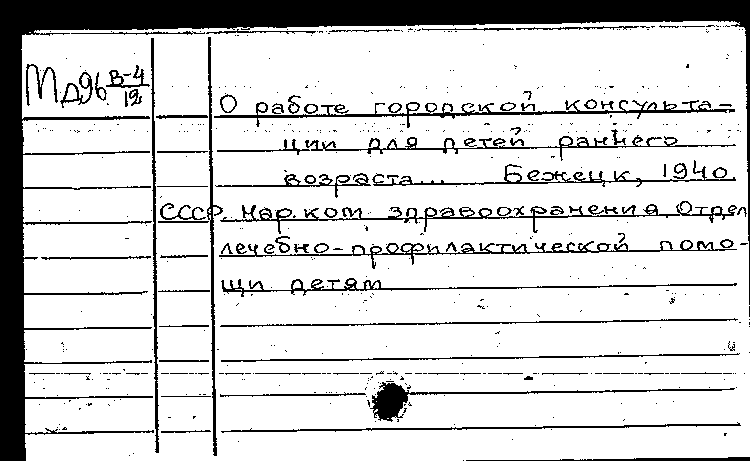 Мд96 В-4/19
О работе городской консульта-
ции для детей раннего
возраста... Бежецк, 1940.
СССР. Нар. ком. здравоохранения. Отдел
лечебно-профилактической помо-
щи детям